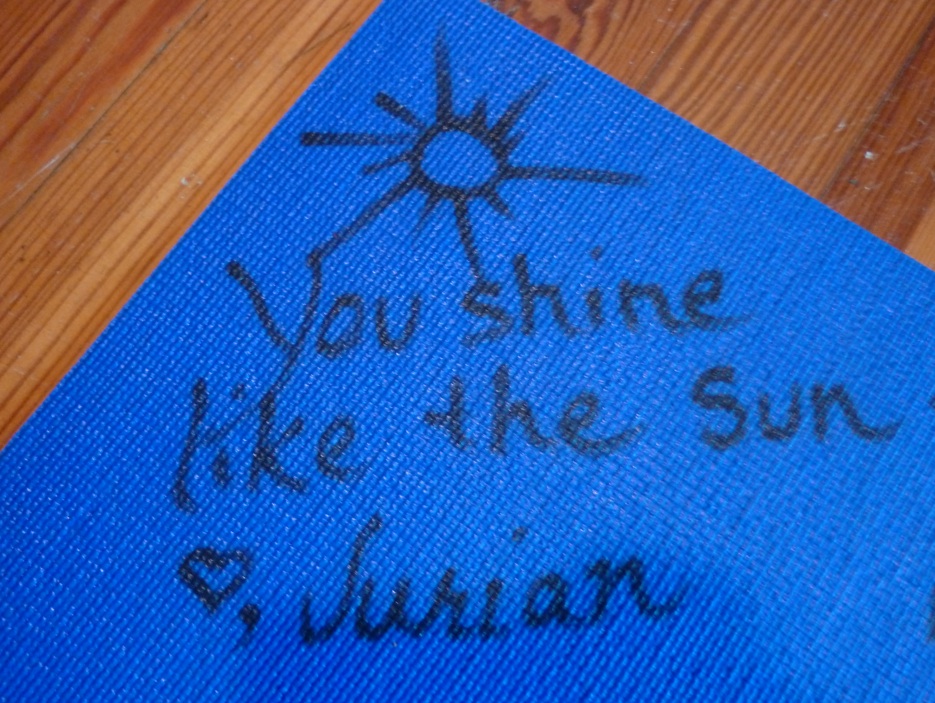 You shine
like the Sun
♥, Jurian